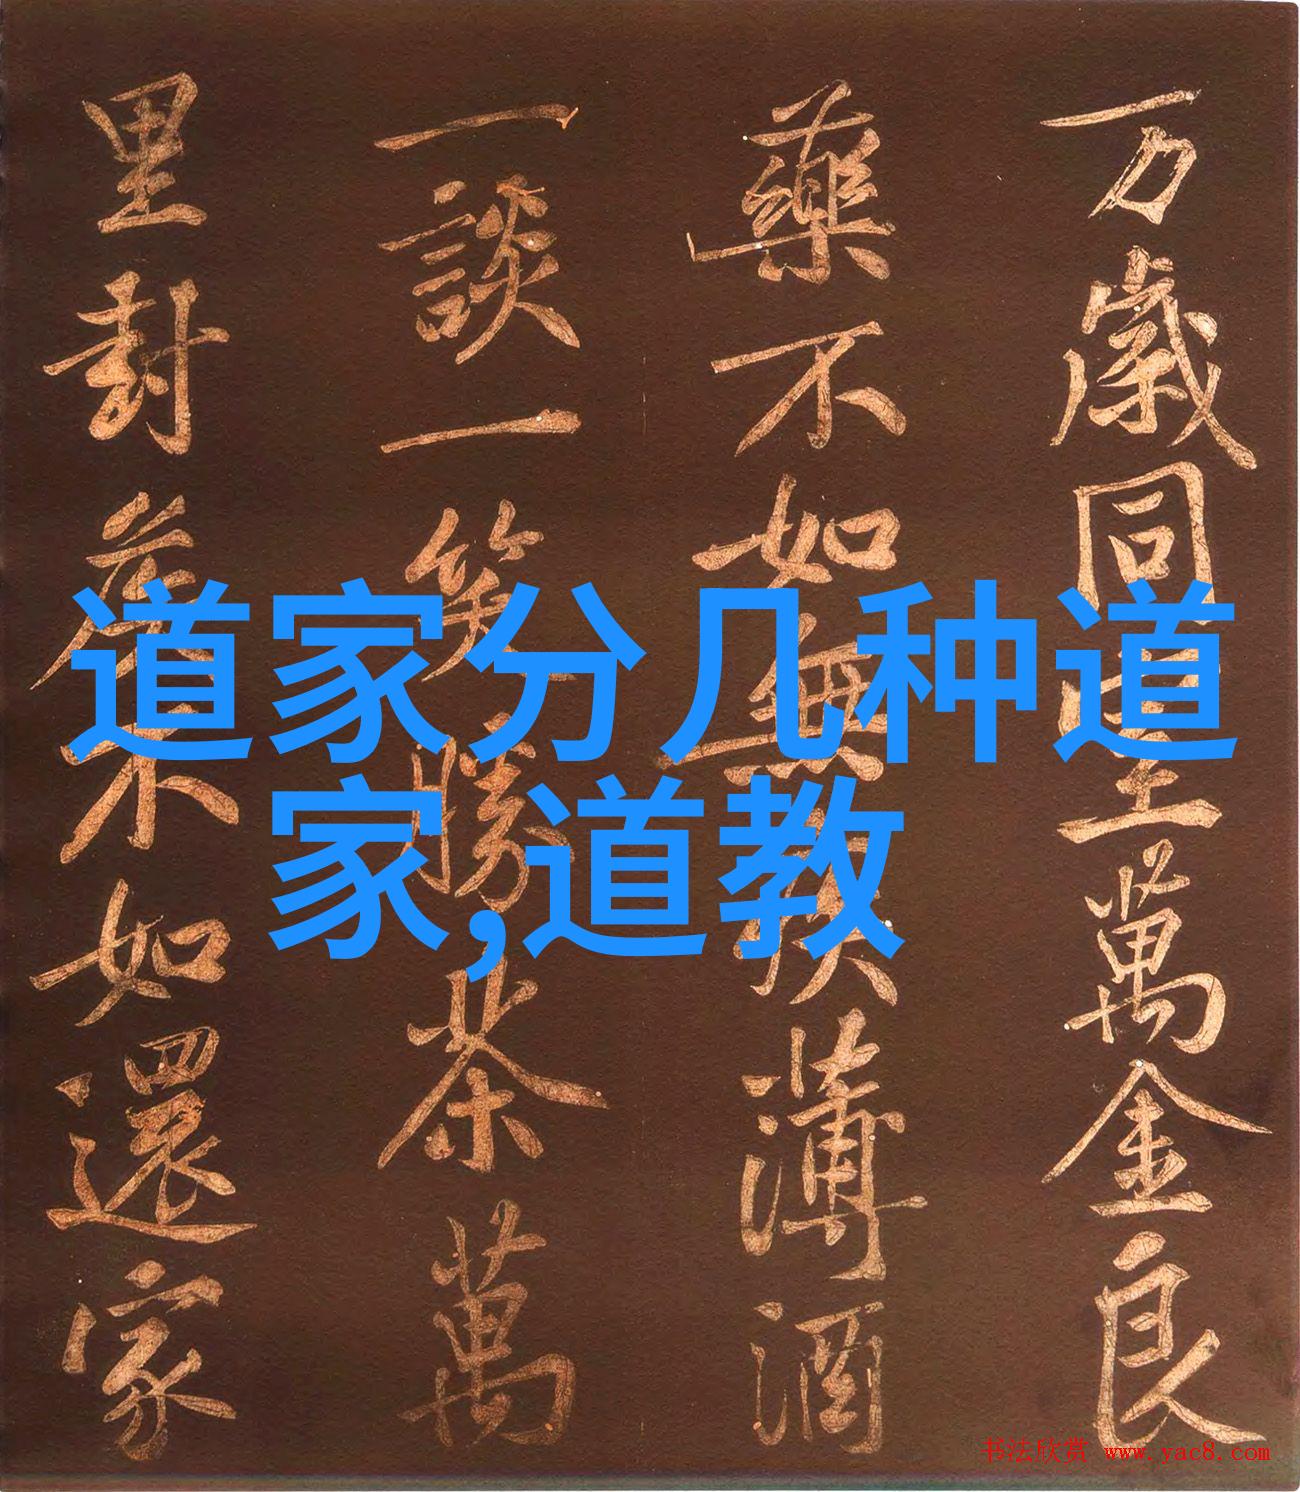 道家分几种道
家,道教
万歲同萬金良
藥不如無疾薄酒
一談一笑勝茶萬
里封侯不如還家
书法欣赏 www.yac8.com